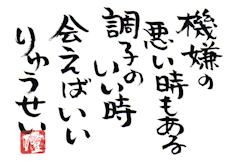 機嫌の
悪い時もある
調子の
いい時
会えばいい
りゅうせい